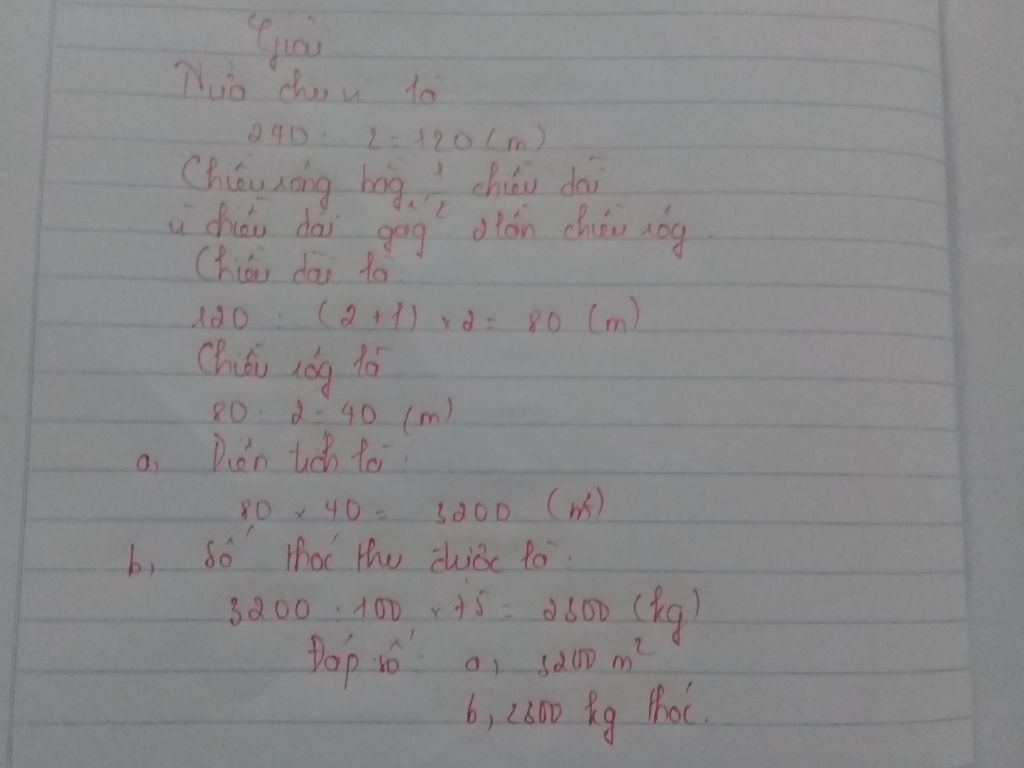 Giải
Nửa chu vi là
240 : 2 = 120 (m)
Chiều rộng bằg 1/2 chiều dài
vì chiều dài gấp 2 lần chiều rộg
Chiều dài là
120 : (2 + 1) x 2 = 80 (m)
Chiều rộg là
80 : 2 = 40 (m)
a, Diện tích là :
80 x 40 = 3200 (m²)
b, Số thóc thu được là :
3200 : 100 x 75 = 2300 (kg)
Đáp số : a, 3200 m²
b, 2300 kg thóc.